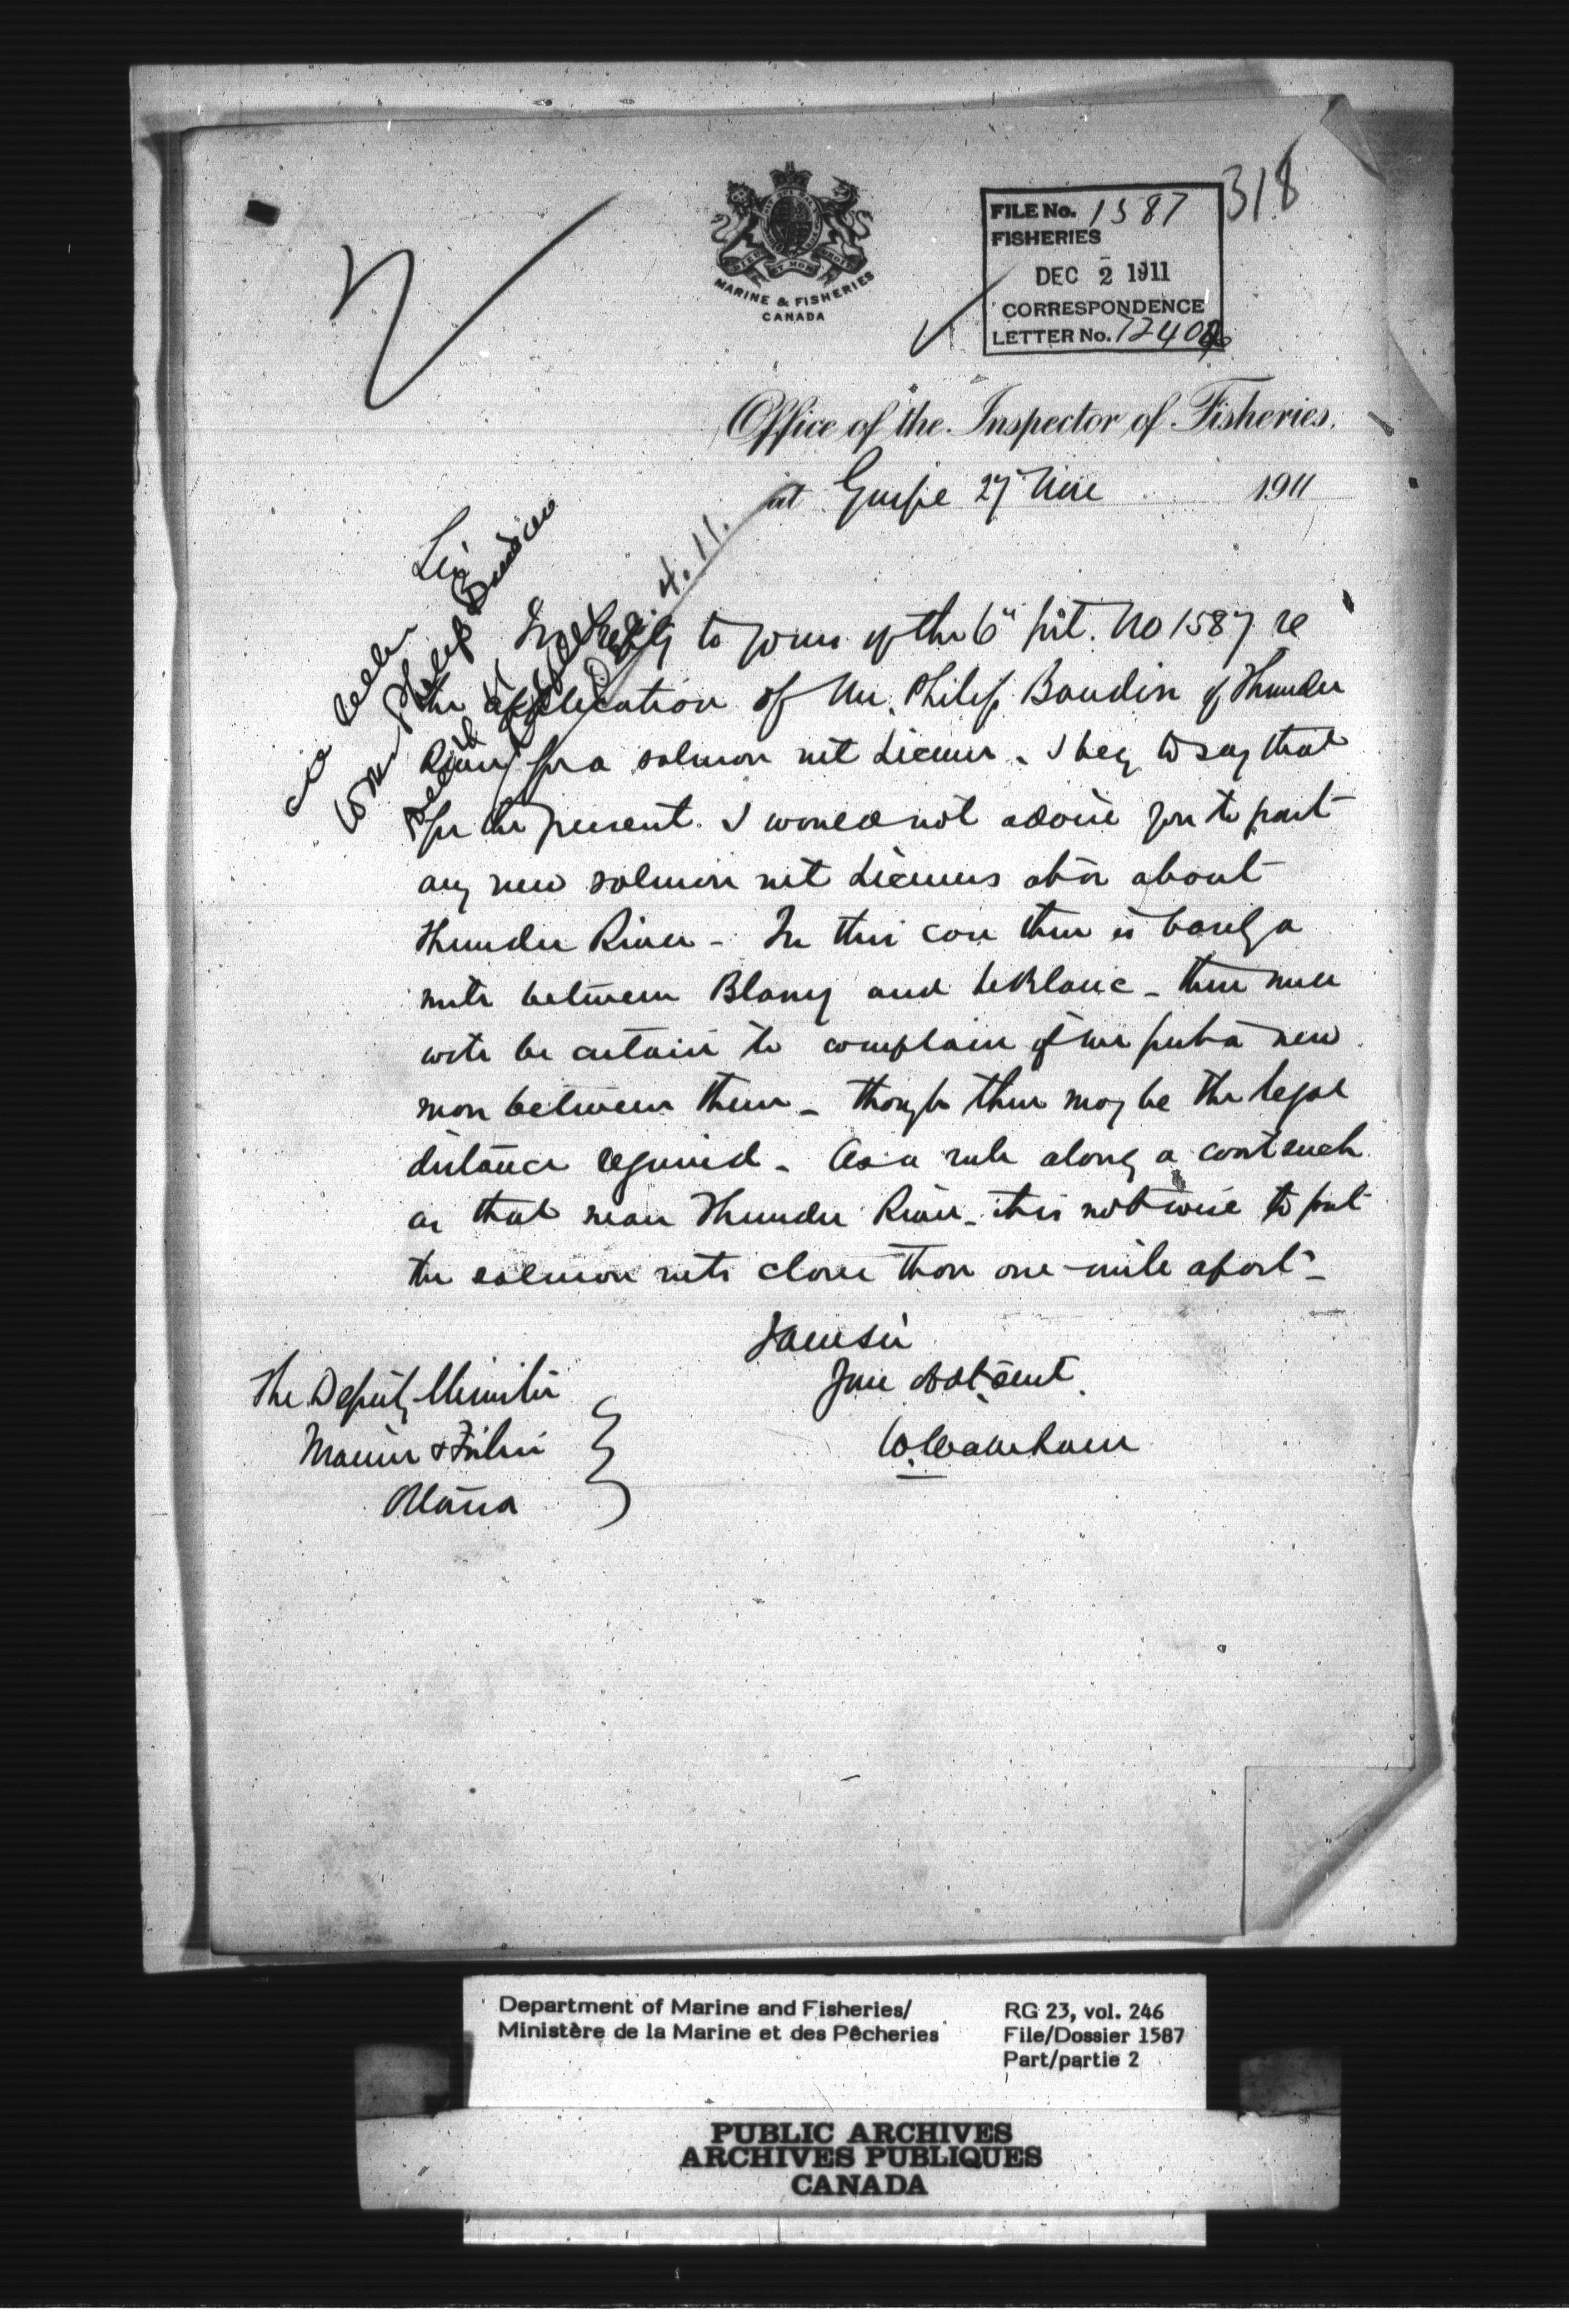 318
FILE No. 1587
FISHERIES
DEC 2 1911
CORRESPONDENCE
LETTER No.
MARINE & FISHERIES
CANADA
Office of the Inspector of Fisheries,
at Gaspe 27 Nov 1911
Sir
In reply to yours of the 6" inst. No 1587 re
the application of Mr. Philip Baudin of Thunder
River for a salmon net License. I beg to say that
for the present. I would not advise you to grant
any new salmon net Licenses at or about
Thunder River - In this case there is barely a
mile between Blaney and LeBlanc - these men
will be certain to complain if we put a new
man between them - though there may be the legal
distance required - As a rule along a coast such
as that near Thunder River - it is not wise to put
the salmon nets closer than one mile apart -
I am sir
Your obt. servt.
W. Wakeham
The Deputy Minister
Marine & Fisheries
Ottawa
Department of Marine and Fisheries/
Ministère de la Marine et des Pêcheries
RG 23, vol. 246
File/Dossier 1587
Part/partie 2
PUBLIC ARCHIVES
ARCHIVES PUBLIQUES
CANADA